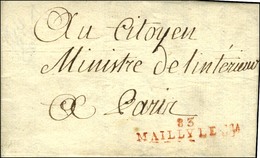 Au Citoyen
Ministre de l'intérieur
A Paris
83
MAILLY LE